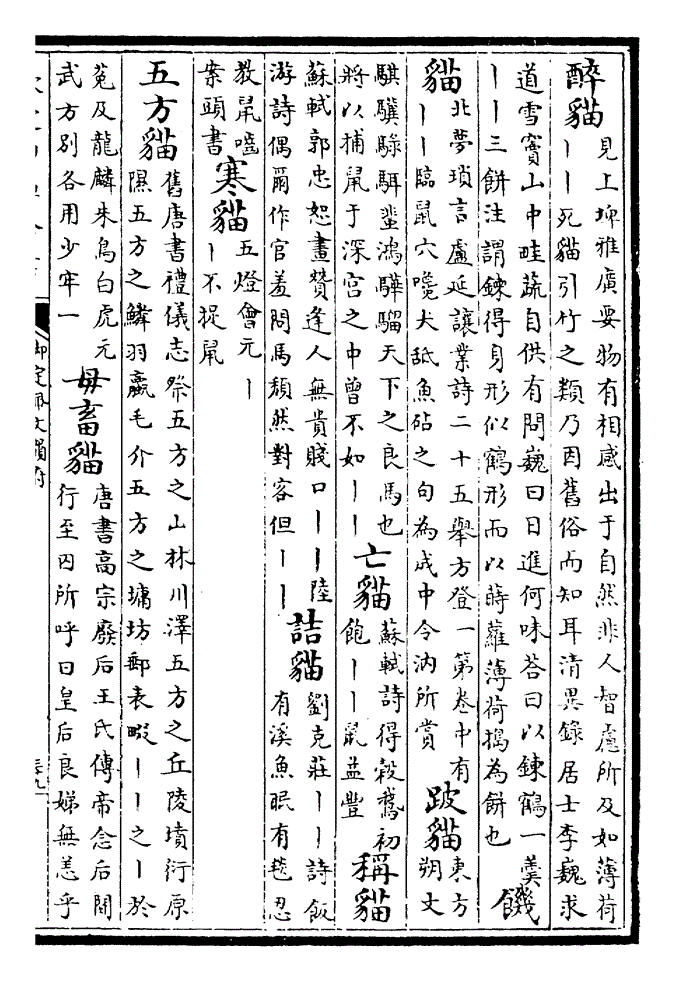 醉貓
見上埤雅廣要物有相感出于自然非人智慮所及如薄荷
丨丨死貓引竹之類乃因舊俗而知耳清異錄居士李巍求
道雪竇山中畦蔬自供有問巍曰日進何味荅曰以鍊鶴一羹
丨丨三餅注謂鍊得身形似鶴形而以蒔蘿薄荷搗為餅也
饑
貓
北夢瑣言盧延讓業詩二十五舉方登一第卷中有
丨丨臨鼠穴嚵犬舐魚砧之句為成中令汭所賞
跛貓
東方
朔文
騏驥騄駬蜚鴻驊騮天下之良馬也
將以捕鼠于深宮之中曾不如丨丨
亡貓
蘇軾詩得穀鵞初
飽丨丨鼠益豐
稱貓
蘇軾郭忠恕畫贊逢人無貴賤口丨丨陸
游詩偶爾作官羞問馬頹然對客但丨丨
詰貓
劉克莊丨丨詩飯
有溪魚眠有毯忍
教鼠嚙
案頭書
寒貓
五燈會元丨
丨不捉鼠
五方貓
舊唐書禮儀志祭五方之山林川澤五方之丘陵墳衍原
隰五方之鱗羽臝毛介五方之墉坊郵表畷丨丨之丨於
菟及龍麟朱鳥白虎元
武方別各用少牢一
毋畜貓
唐書高宗廢后王氏傳帝念后間
行至囚所呼曰皇后良娣無恙乎
御定佩文韻府